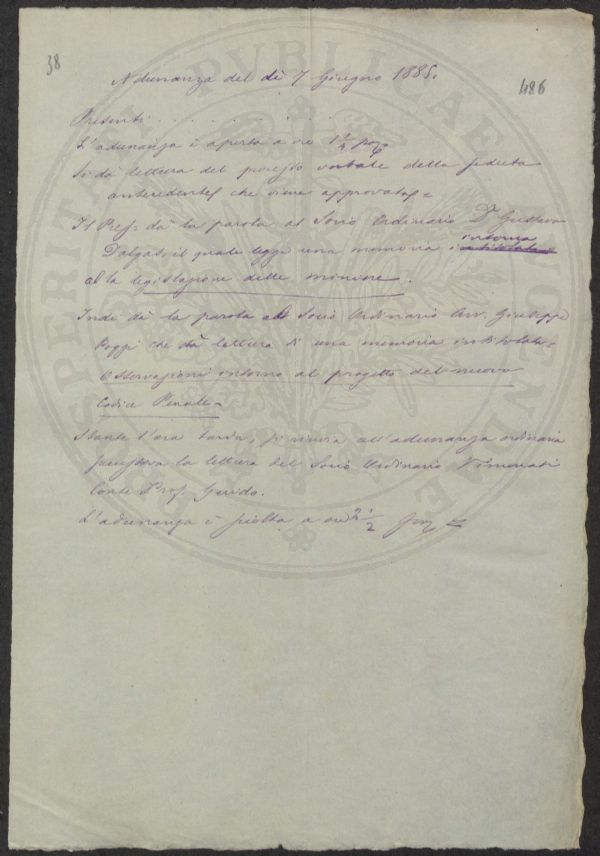 38
486
Adunanza del dì 7 Giugno 1885.
Presenti . . . . . . . .
L'adunanza è aperta a ore 1 1/4 pom
Si dà lettura del processo verbale della seduta
antecedente che viene approvato =
Il Pres. dà la parola al Socio Ordinario Dr. Gustavo
intorno
Dalgas il quale legge una memoria intitolata
alla legislazione delle miniere.
Indi dà la parola al Socio Ordinario Avv. Giuseppe
Poggi che dà lettura di una memoria intitolata.
Osservazioni intorno al progetto del nuovo
Codice Penale =
Stante l'ora tarda, si rinvia all'adunanza ordinaria
successiva la lettura del Socio Ordinario
Conte Prof. Guido.
L'adunanza è sciolta a ore 2 1/2 pom =
PROSPERITATI PVBLICAE AVGENDAE